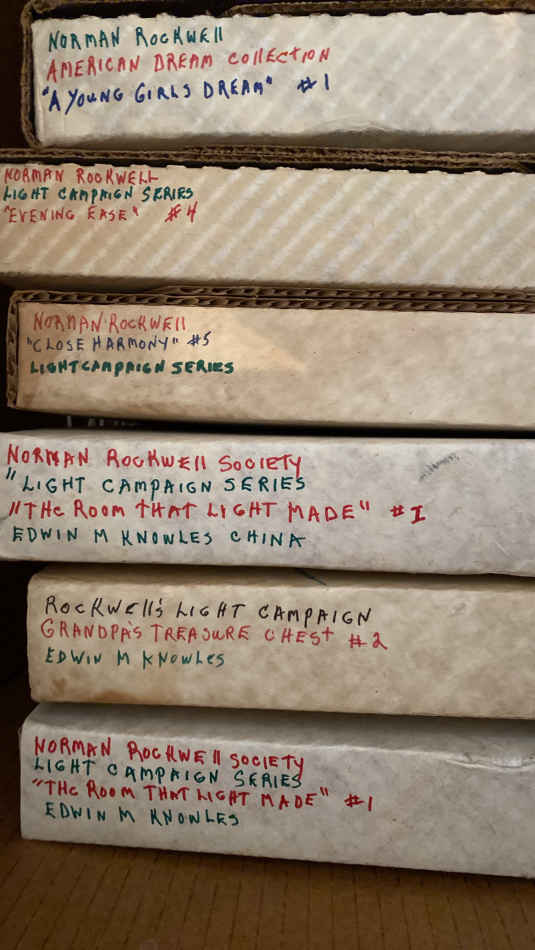 NORMAN ROCKWELL
AMERICAN DREAM COLLECTION
"A YOUNG GIRLS DREAM" #1
NORMAN ROCKWELL
LIGHT CAMPAIGN SERIES
"EVENING EASE" #4
NORMAN ROCKWELL
"CLOSE HARMONY" #5
LIGHT CAMPAIGN SERIES
NORMAN ROCKWELL SOCIETY
"LIGHT CAMPAIGN SERIES
"THE ROOM THAT LIGHT MADE" #1
EDWIN M KNOWLES CHINA
ROCKWELL'S LIGHT CAMPAIGN
GRANDPA'S TREASURE CHEST #2
EDWIN M KNOWLES
NORMAN ROCKWELL SOCIETY
LIGHT CAMPAIGN SERIES
"THE ROOM THAT LIGHT MADE" #1
EDWIN M KNOWLES